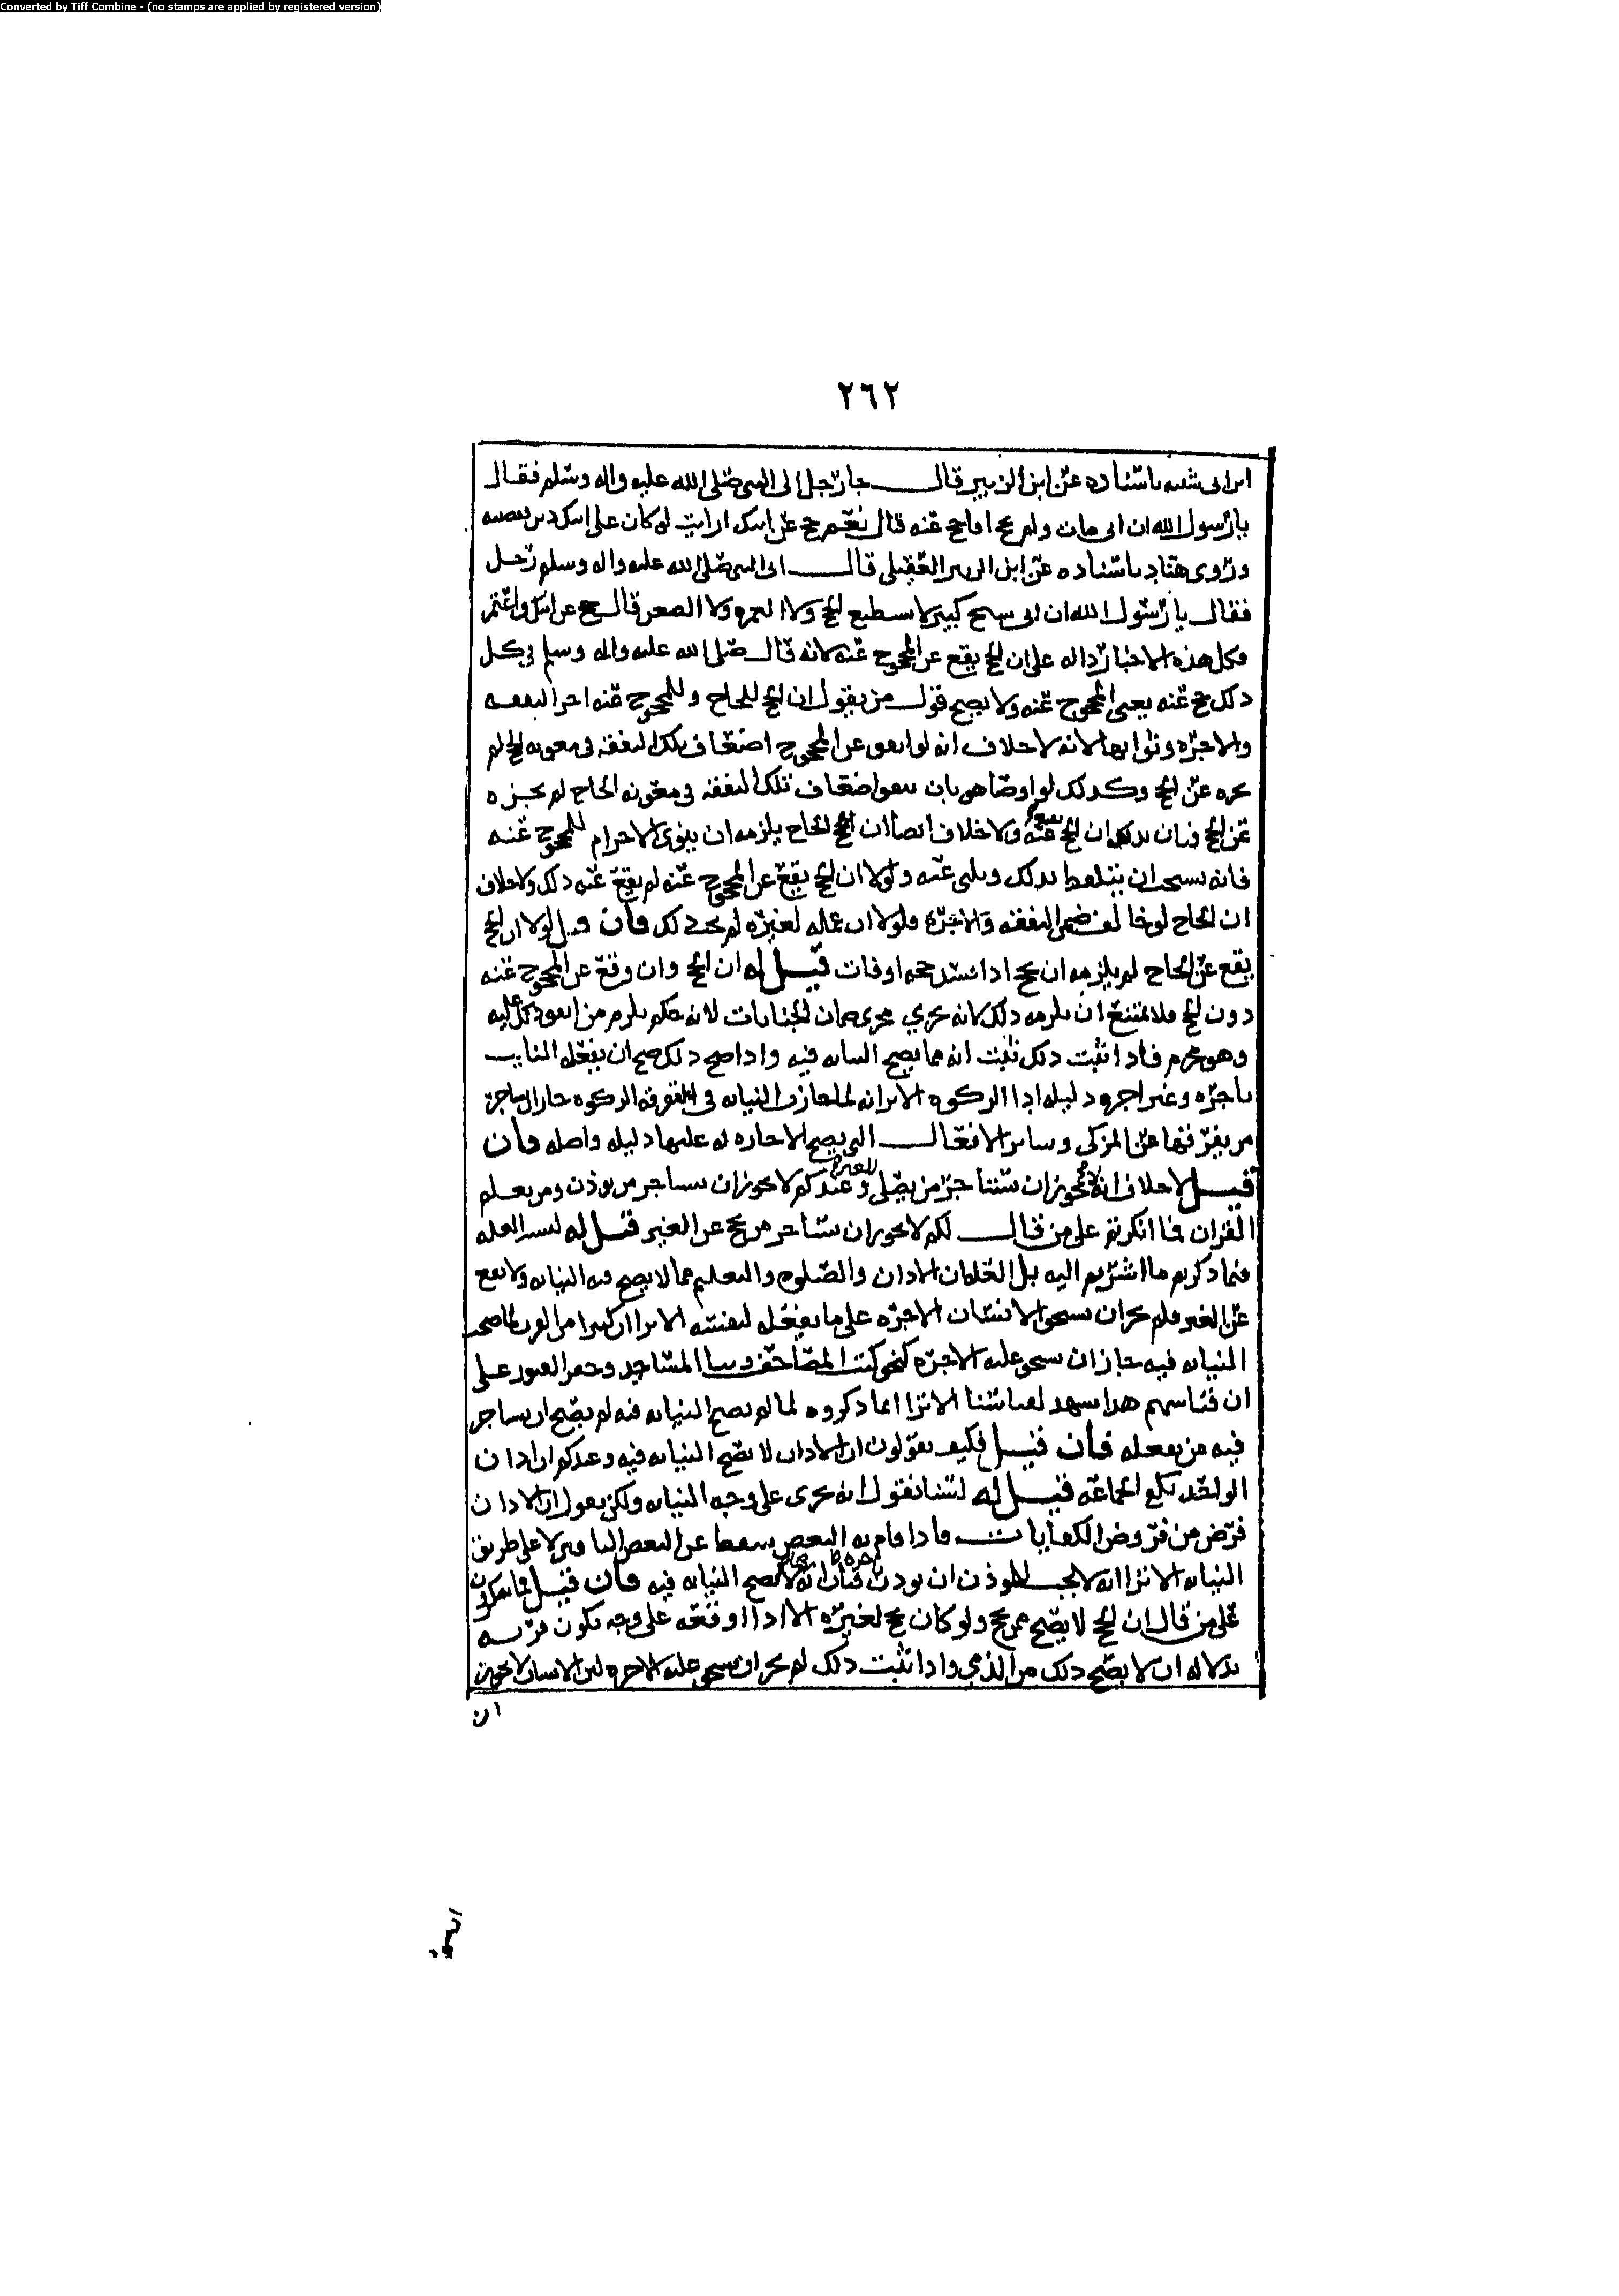 Converted by Tiff Combine - (no stamps are applied by registered version)
٢٦٢
ابن ابى شيبه باسناده عن ابن الزبير قال جا رجل الى النبى صلى الله عليه واله وسلم فقال
يا رسول الله ان ابى مات ولم يحج افاحج عنه قال نعم حج عن ابيك ارايت لو كان على ابيك دين
وروى هناد باسناده عن ابى العقيلى قال اتى النبى صلى الله عليه واله وسلم رجل
فقال يا رسول الله ان ابى شيخ كبير لا يستطيع الحج ولا العمره ولا الضعن قال حج عن ابيك واعتمر
وكل هذه الاخبار داله على ان الحج يقع عن المحجوج عنه لانه قال صلى الله عليه واله وسلم فى كل
ذلك حج عنه يعنى المحجوج عنه ولا يصح قول من يقول ان الحج للحاج وللمحجوج عنه اجر النفقه
والاجره وثوابها لانه لا خلاف انه لو انفق عن المحجوج اضعاف تلك النفقه فى معونه الحج لم
يجزه عن الحج وكذلك لو اوصا هو بان ينفق اضعاف تلك النفقه فى معونه الحاج لم يجزه
عن الحج فبان بذلك ان الحج عنه ولا خلاف ايضا ان الحاج يلزمه ان ينوى الاحرام للمحجوج عنه
فانه يستحب ان يتلفظ بذلك ويلبى عنه ولولا ان الحج يقع عن المحجوج عنه لم يقع عنه ذلك ولا خلاف
ان الحاج لو خالف ضمن النفقه والاجره ولولا ان عمله لغيره لم يجب ذلك فان قيل لولا ان الحج
يقع عن الحاج لم يلزمه ان يحج اذا فسد حجه او فات قيل له ان الحج وان وقع عن المحجوج عنه
دون الحج فلا يمتنع ان يلزمه ذلك لانه يجري مجرى ضمان الجنايات لانه حكم يلزم من
وهو محرم فاذا ثبت ذلك ثبت انه مما يصح النيابه فيه واذا صح ذلك صح ان يفعله النايب
باجره وغير اجره دليله ادا الزكوه الا ترا انه لما جازت النيابه فى تفرقه الزكوه جاز ان يستاجر
من يفرقها عن المزكى وساير الافعال التى يصح الاجاره له عليها دليله واصله فان
قيل لا خلاف انه لا يجوز ان يستاجر من يصلى للغير وعندكم لا يجوز ان يستاجر من يوذن ومن يعلم
القران فما انكرتم على من قال لكم لا يجوز ان يستاجر من يحج عن الغير قيل له ليس العله
فيما ذكرتم ما اشرتم اليه بل العله ان الاذان والصلوه والتعليم مما لا يصح فيه النيابه ولا يقع
عن الغير فلم يجز ان يستحق الانسان الاجره على ما يفعله لنفسه الا ترا ان كثيرا من القرب لما صحت
النيابه فيه جاز ان يستحق عليه الاجره كنحو كتب المصاحف وبنا المساجد وحفر القبور على
ان قياسهم هذا يشهد لقياسنا الا ترا انما ذكروه لما لم يصح النيابه فيه لم يصح ان يستاجر
فيه من يفعله فان قيل فكيف تقولون ان الاذان لا تصح النيابه فيه وعندكم ان اذان
الواحد يكفى الجماعه قيل له لسنا نقول انه يجرى على وجه النيابه ولكن نقول ان الاذان
فرض من فروض الكفايات فاذا قام به البعض سقط عن البعض الباقين لا على طريق
النيابه الا ترا انه لا يجب للموذن ان يوذن فبان انه لا تصح النيابه فيه فان قيل فما تنكرون
على من قال ان الحج لا يصح ممن يحج ولو كان يحج لغيره الا اذا اوقعه على وجه يكون قربه
بدلاله ان لا يصح ذلك من الذمي واذا ثبت ذلك لم يجز ان يستحق عليه الاجره لان الانسان لا يجوز
ان